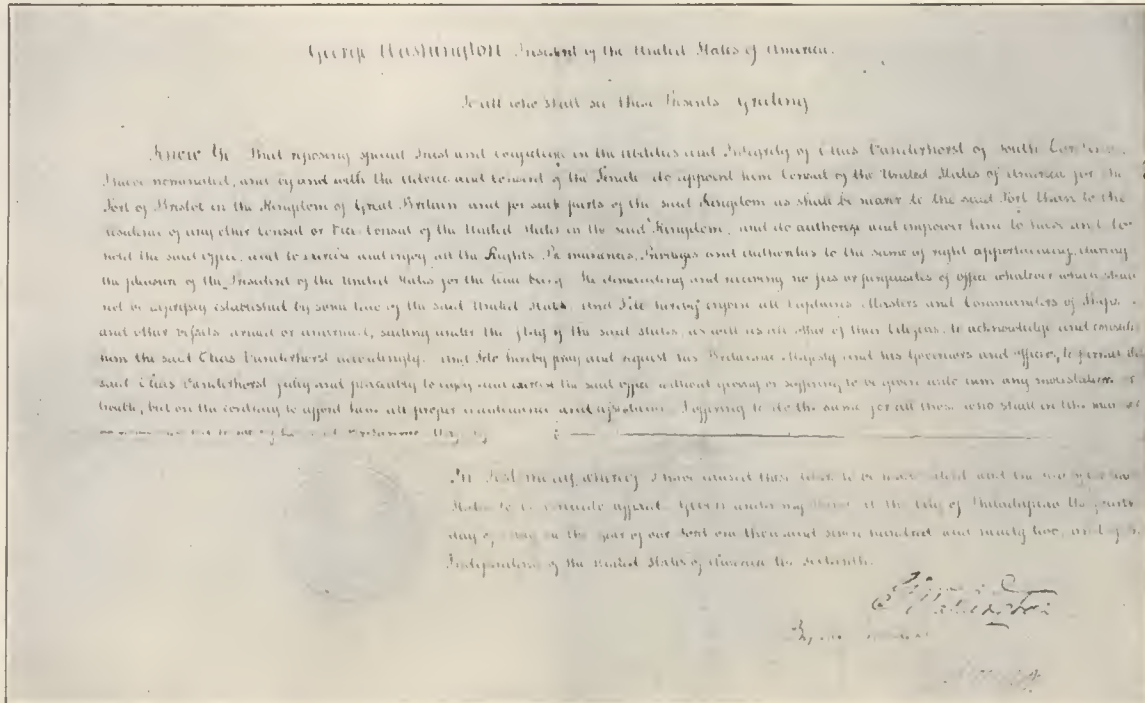 George Washington President of the United States of America.
To all who shall see these Presents Greeting
Know Ye That reposing special Trust and confidence in the Abilities and Integrity of Elias Vanderhorst of South Carolina
I have nominated, and by and with the advice and consent of the Senate do appoint him Consul of the United States of America for the
Port of Bristol in the Kingdom of Great Britain and for such parts of the said Kingdom as shall be nearer to the said Port than to the
residence of any other Consul or Vice Consul of the United States in the said Kingdom, and do authorize and empower him to have and to
hold the said office and to exercise and enjoy all the Rights Preeminences, Privileges and authorities to the same of right appertaining, during
the pleasure of the President of the United States for the time being. He demanding and receiving no fees or perquisites of office whatever which shall
not be expressly established by some law of the said United States. and I do hereby enjoin all Captains Masters and Commanders of Ships
and other vessels armed or unarmed, sailing under the flag of the said States, as well as all other of their Citizens, to acknowledge and consider
him the said Elias Vanderhorst accordingly. and I do hereby pray and request his Britannic Majesty and his Governors and officers, to permit the
said Elias Vanderhorst fully and peaceably to enjoy and exercise the said office without giving or suffering to be given unto him any molestation or
trouble, but on the contrary to afford him all proper countenance and assistance. I offering to do the same for all those who shall in like manner
In Testimony whereof I have caused these to be made and the
States to be hereunto affixed Given under my hand at the City of Philadelphia the
day of May in the year of our Lord one thousand seven hundred and ninety two, and of the
Independence of the United States of America the sixteenth.